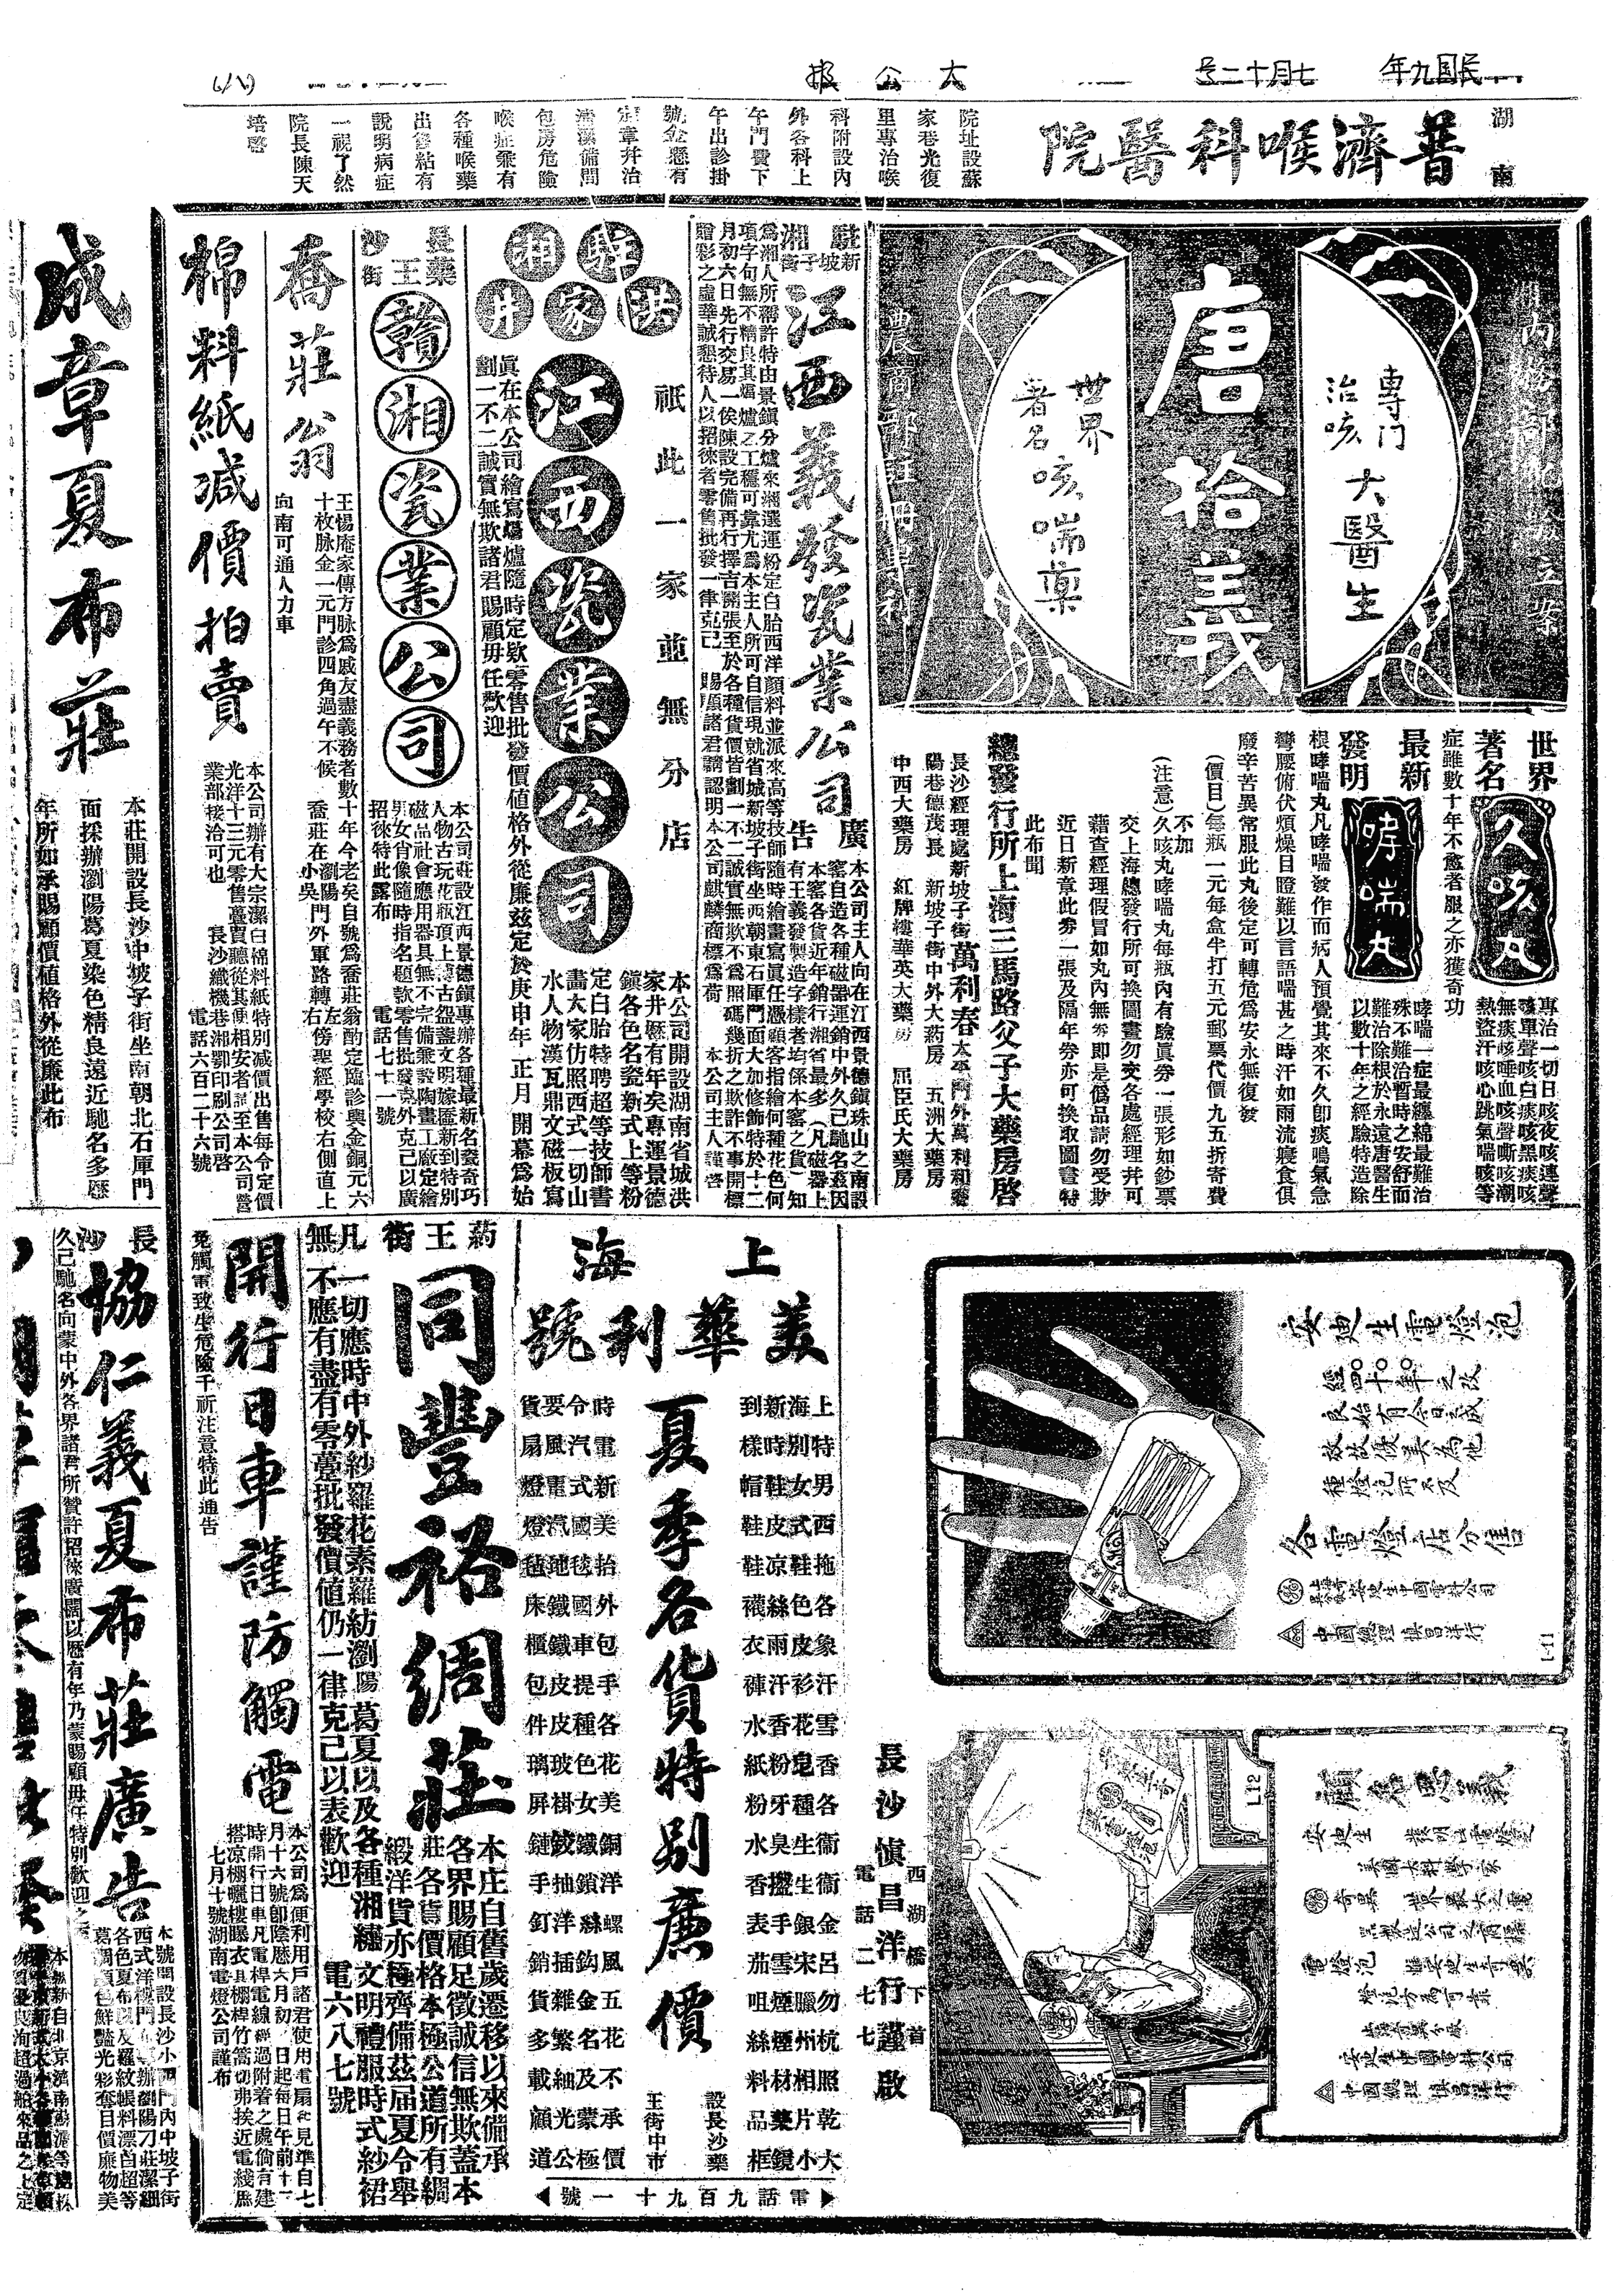 民國九年
七月十二号
大公報
(八)
湖南
普濟喉科醫院
院址設蘇
家巷光復
里專治喉
科附設內
外各科上
午門費下
午出診掛
號金懸有
定章幷治
包房危險
喉症藥有
各種喉藥
說明病症
一視了然
院長陳天
培啓
農商部註冊專利
唐拾義
專門治咳
大醫生
世界著名
咳喘藥
世界著名
久咳丸
專治一切日咳夜咳連聲
咳單聲咳白痰咳黑痰咳
無痰咳唾血咳聲嘶咳潮
熱盜汗咳心跳氣喘咳等
症雖數十年不愈者服之亦獲奇功
最新發明
哮喘丸
哮喘一症最纏綿最難治
殊不難治暫時之安舒而
難治除根於永遠唐醫生
以數十年之經驗特造除
根哮喘丸凡哮喘發作而病人預覺其來不久卽痰鳴氣急
彎腰俯伏煩燥目瞪難以言語喘甚之時汗如雨流寢食俱
廢辛苦異常服此丸後定可轉危爲安永無復發
(價目)每瓶一元每盒半打五元郵票代價九五折寄費
不加
(注意)久咳丸哮喘丸每瓶內有驗眞券一張形如鈔票
交上海總發行所可換圖畫勿交各處經理幷可
藉查經理假冒如丸內無券卽是僞品請勿受欺
近日新章此券一張及隔年券亦可換取圖畫特
此布聞
總發行所上海三馬路父子大藥房啓
長沙經理處新坡子街萬利春太平門外萬利和棧
陽巷德茂長 新坡子街中外大葯房 五洲大藥房
中西大藥房 紅牌樓華英大藥房 屈臣氏大藥房
駐湘
新坡子街
江西義發瓷業公司
廣告
本公司主人向在江西景德鎭珠山之南設
窰自造各種磁器運銷中外久已馳名茲因
本窰各貨近年銷行湘省最多(凡磁器上
有王義發製造字樣者均係本窰之貨)知
爲湘人所稱許特由景鎭分爐來湘選運粉定白胎西洋顏料並派來高等技師隨時繪畫寫眞任憑顧客指繪何種花色何
項字句無不精良其爐之工穩可靠尤爲本主人所可自信現就省城新坡子街坐西朝東石庫門面大加修飾特於十二
月初六日先行交易一俟陳設完備再行擇吉開張至於各種貨價皆劃一不二誠實無欺不爲照碼幾折之欺詐不事開標
贈彩之虛華誠懇待人以招徠者零售批發一律克己 賜顧諸君請認明本公司麒麟商標爲荷 本公司主人謹啓
祇此一家並無分店
駐湘
洪家井
江西瓷業公司
本公司開設湖南省城洪
家井歷有年矣專運景德
鎭各色名瓷新式上等粉
定白胎特聘超等技師書
畫大家仿照西式一切山
水人物漢瓦鼎文磁板寫
眞在本公司繪寫爐隨時定欵零售批發價値格外從廉茲定於庚申年正月開幕爲始
劃一不二誠實無欺諸君賜顧毋任歡迎
長沙
藥王街
贛湘瓷業公司
本公司莊設江西景德鎭專辦各種最新名瓷奇巧
人物古玩花瓶頂上博古盤盞文明嫁匲新到特別
磁品社會應用器具無不完備兼設陶畫工廠定繪
男女肖像隨時指名題款零售批發格外克己以廣
招徠特此露布 電話七七一號
喬莊翁
王惕庵家傳方脉爲戚友盡義務者數十年今老矣自號爲喬莊翁酌定臨診輿金銅元六
十枚脉金一元門診四角過午不候 喬莊在小吳門外軍路轉右傍聖經學校右側直上
向南可通人力車
棉料紙減價拍賣
本公司辦有大宗潔白棉料紙特別减價出售每令定價
光洋十三元零售躉賣聽從其便相安者請至本公司營
業部接洽可也 長沙織機巷湘鄂印刷公司啓
電話六百二十六號
成章夏布莊
本莊開設長沙中坡子街坐南朝北石厙門
面採辦瀏陽葛夏染色精良遠近馳名多歷
年所如承賜顧價値格外從廉此布
安迪生電燈泡
經四十年之改
良始有今日之成
效故優美為他
種燈泡所不及
各電燈店分售
中國總經理 慎昌洋行
L-11
L12
顧名思義
安迪生 發明此電燈之
美國大科學家
奇異 世界最大之電
氣製造公司之商標
電燈泡
安迪生中國電料公司
中國總經理 慎昌洋行
長沙愼昌洋行謹啟
西湖橋下首
電話二七七
上海
美華利號
夏季各貨特別廉價
上海新到
特別時樣
男女鞋帽
西式皮鞋
拖鞋凉鞋
各色絲襪
象皮雨衣
汗衫汗褲
雪花香水
香皂粉紙
各種牙粉
衞生臭水
衞生盬香
金銀手表
呂宋雪茄
勿臘煙咀
杭州煙絲
照相材料
乾片藥品
大小鏡框
時令要貨
電汽風扇
新式電燈
美國汽燈
拾毯地毡
外國鐵床
包車鐵櫃
手提皮包
各種皮件
花色玻璃
美女褂屏
銅鐵鉸鏈
洋鎖抽手
螺絲洋釘
風鈎插銷
五金雜貨
花名繁多
不及細載
承蒙光顧
價極公道
設長沙藥王街中市
電話九百九十一號
葯王街
同豐裕綢莊
本庄自舊歲遷移以來備承
各界賜顧足徵誠信無欺蓋本
莊各貨價格本極公道所有綢
緞洋貨亦極齊備茲屆夏令舉
凡一切應時中外紗羅花素羅紡瀏陽葛夏以及各種湘繡文明禮服時式紗裙
無不應有盡有零躉批發價値仍一律克己以表歡迎 電六八七號
開行日車謹防觸電
本公司爲便利用戶諸君使用電扇起見準自七
月十六號卽陰歷六月初一日起每日午前十一
時開行日車凡電桿電線經過附着之處倘有建
搭凉棚曬樓曝衣具棚桿竹篙切弗挨近電綫庶
免觸電致生危險千祈注意特此通告
七月十號湖南電燈公司謹布
長沙
協仁義夏布莊廣告
本號開設長沙小西門內中坡子街
各色夏布以及羅紋帳料漂白超等
久已馳名向蒙中外各界諸君所贊許招徠廣闊以歷有年乃蒙賜顧毋任特別歡迎之至